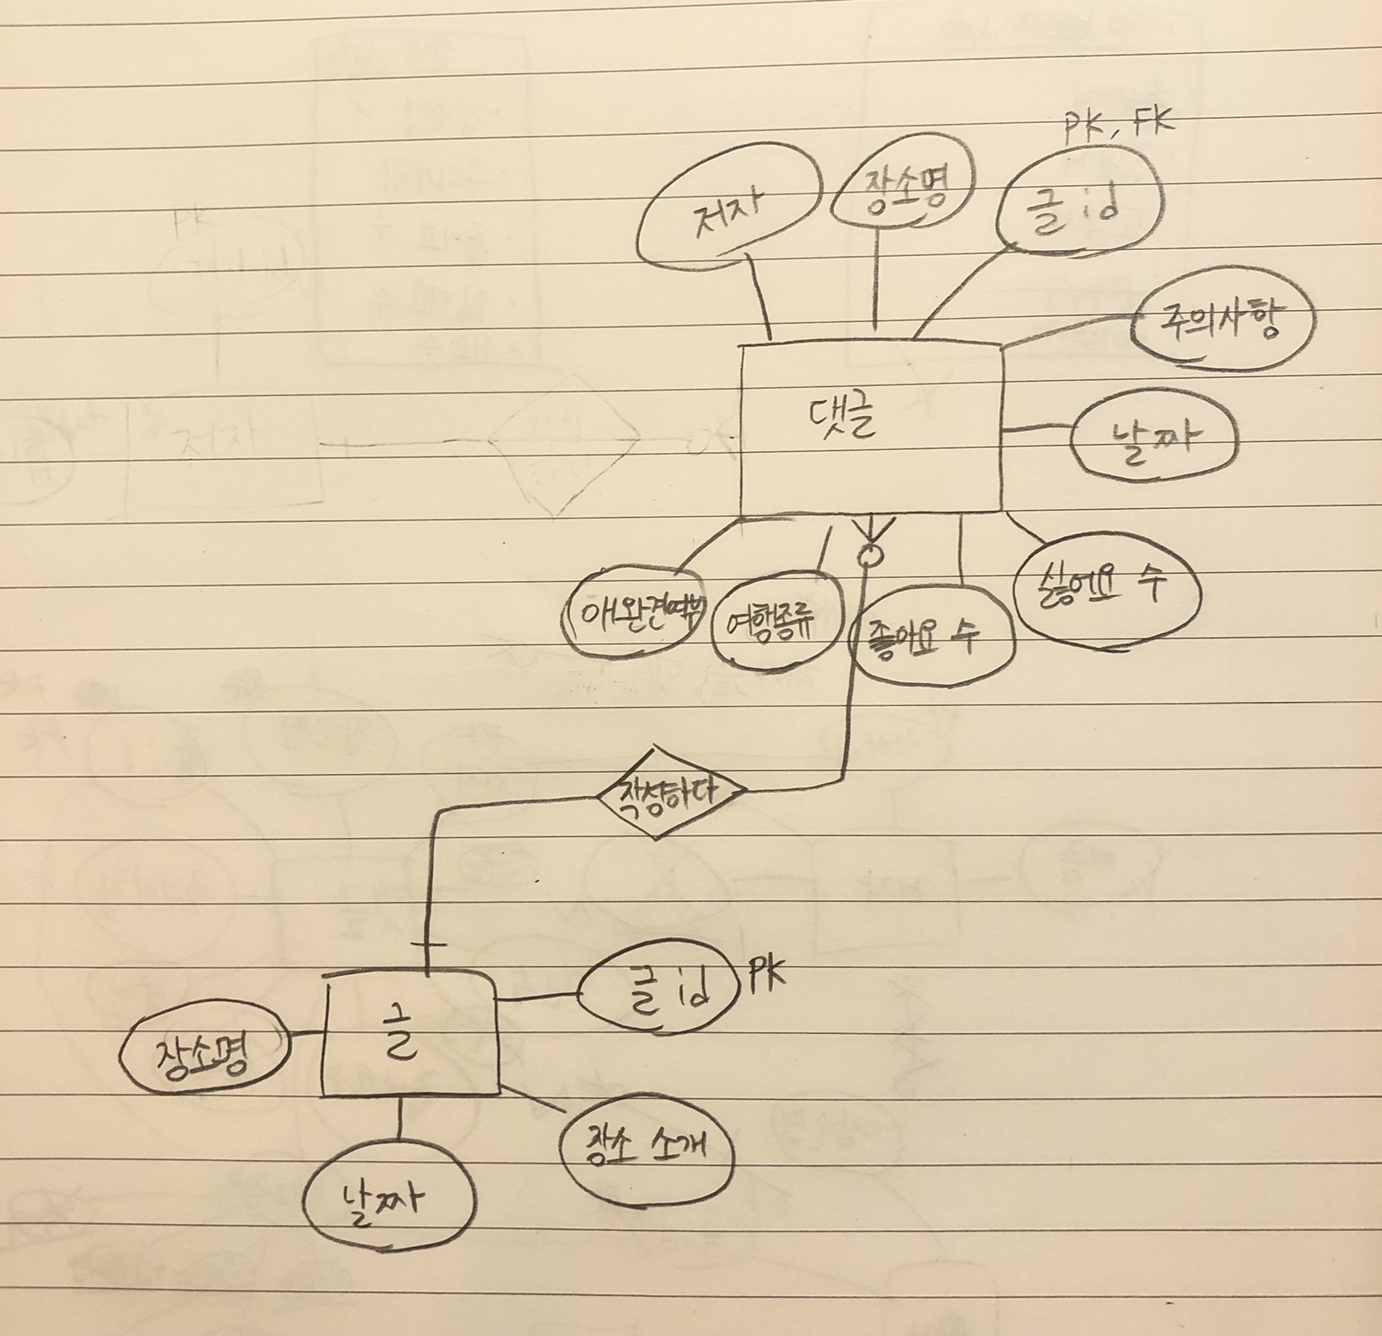 PK, FK
저자
장소명
글 id
주의사항
댓글
날짜
애완견여부
여행종류
좋아요 수
싫어요 수
작성하다
글 id PK
글
장소명
장소 소개
날짜